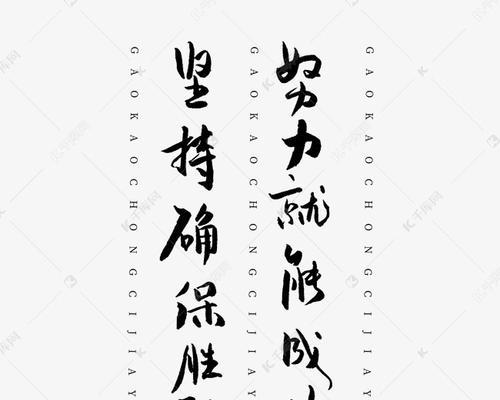 GAOKAOCHONGCIJIAY
努力就能成
GAOKAOCHONGCIJIAY
坚持确保胜
GAOKAOCHONGCIJIAY
千库网